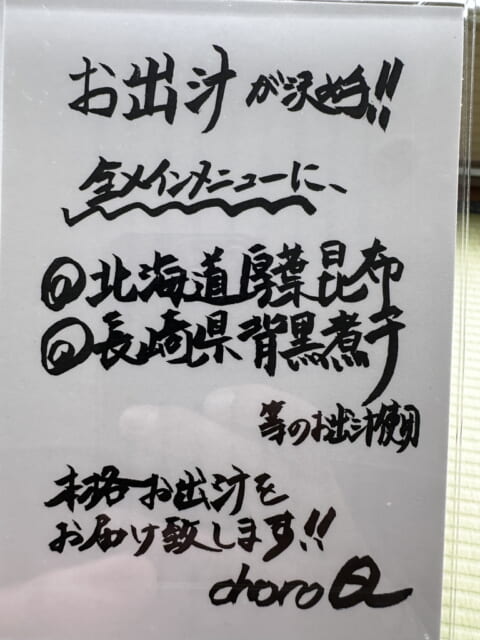 お出汁が決め手!!
全メインメニューに、
◎北海道厚葉昆布
◎長崎県背黒煮干
等のお出汁使用
本格お出汁を
お届け致します!!
choro Q